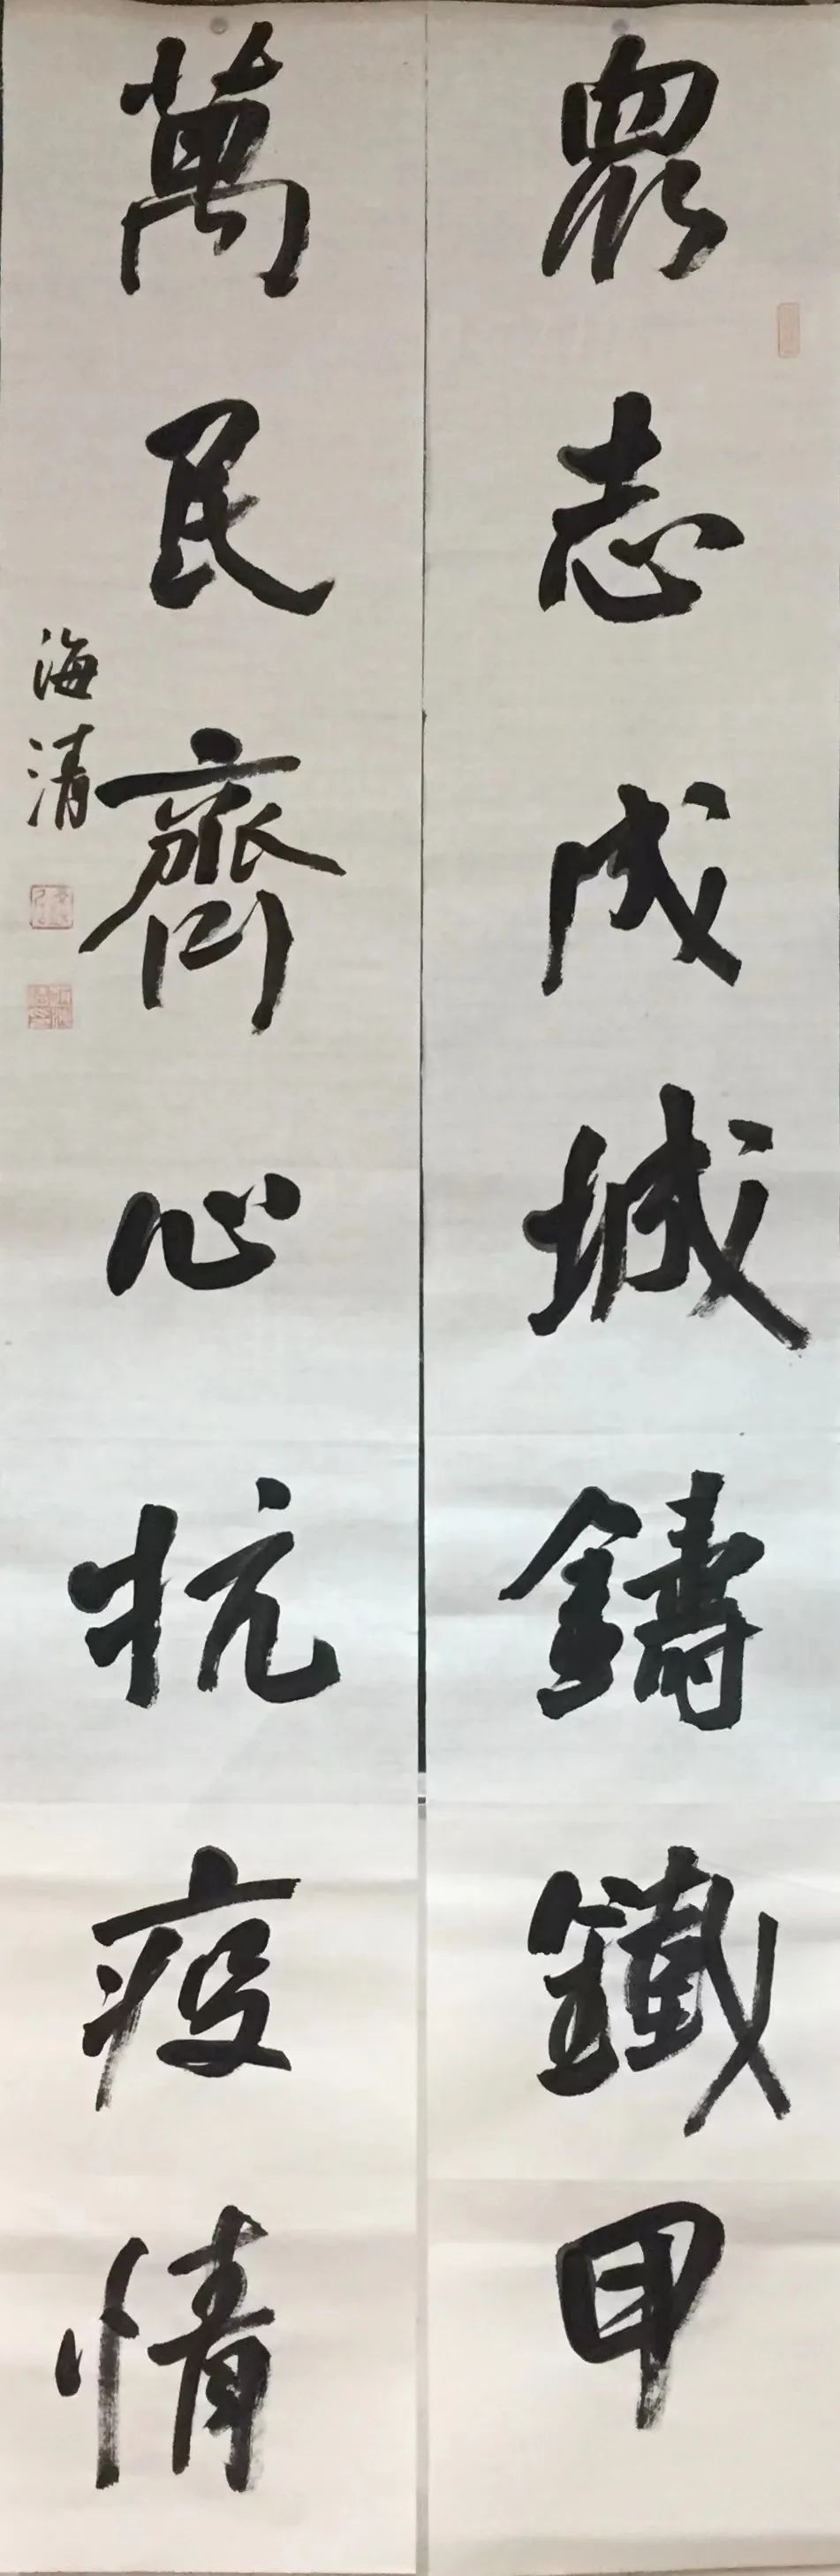 眾志成城鑄鐵甲
萬民齊心抗疫情
海清